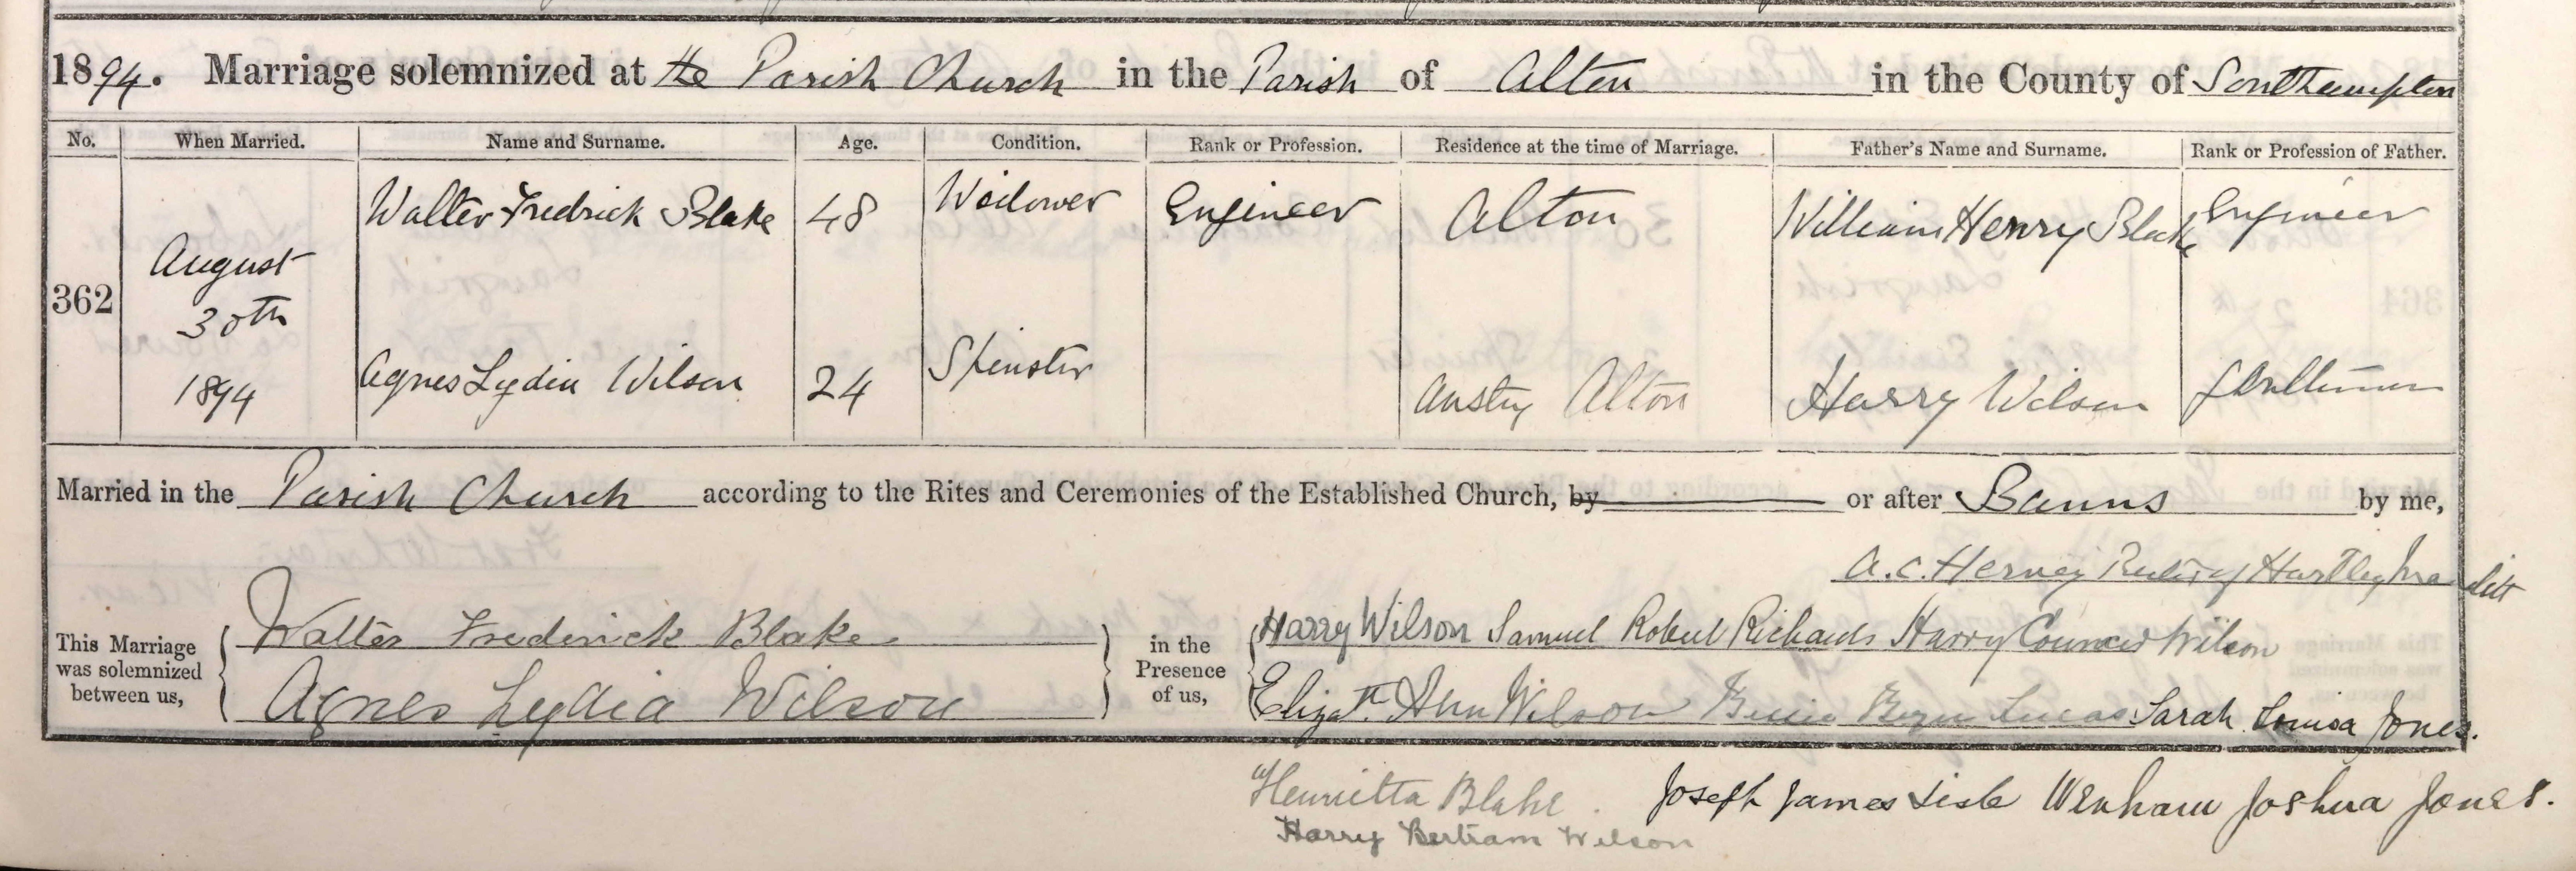 1894. Marriage solemnized at the Parish Church in the Parish of Alton in the County of Southampton
No. When Married. Name and Surname. Age. Condition. Rank or Profession. Residence at the time of Marriage. Father's Name and Surname. Rank or Profession of Father.
Walter Fredrick Blake 48 Widower Engineer Alton William Henry Blake Engineer
362 August 30th 1894
Agnes Lydia Wilson 24 Spinster Anstey Alton Harry Wilson Gentleman
Married in the Parish Church according to the Rites and Ceremonies of the Established Church, by or after Banns by me,
A.C. Hervey Rector of Hartley Mauditt
This Marriage was solemnized between us,
Walter Frederick Blake
Agnes Lydia Wilson
in the Presence of us,
Harry Wilson Samuel Robert Richards Harry Wilson
Elizath. Ann Wilson Lucas Sarah Louisa Jones.
Henrietta Blake. Joseph James Wenham Joshua Jones.
Harry Bertram Wilson